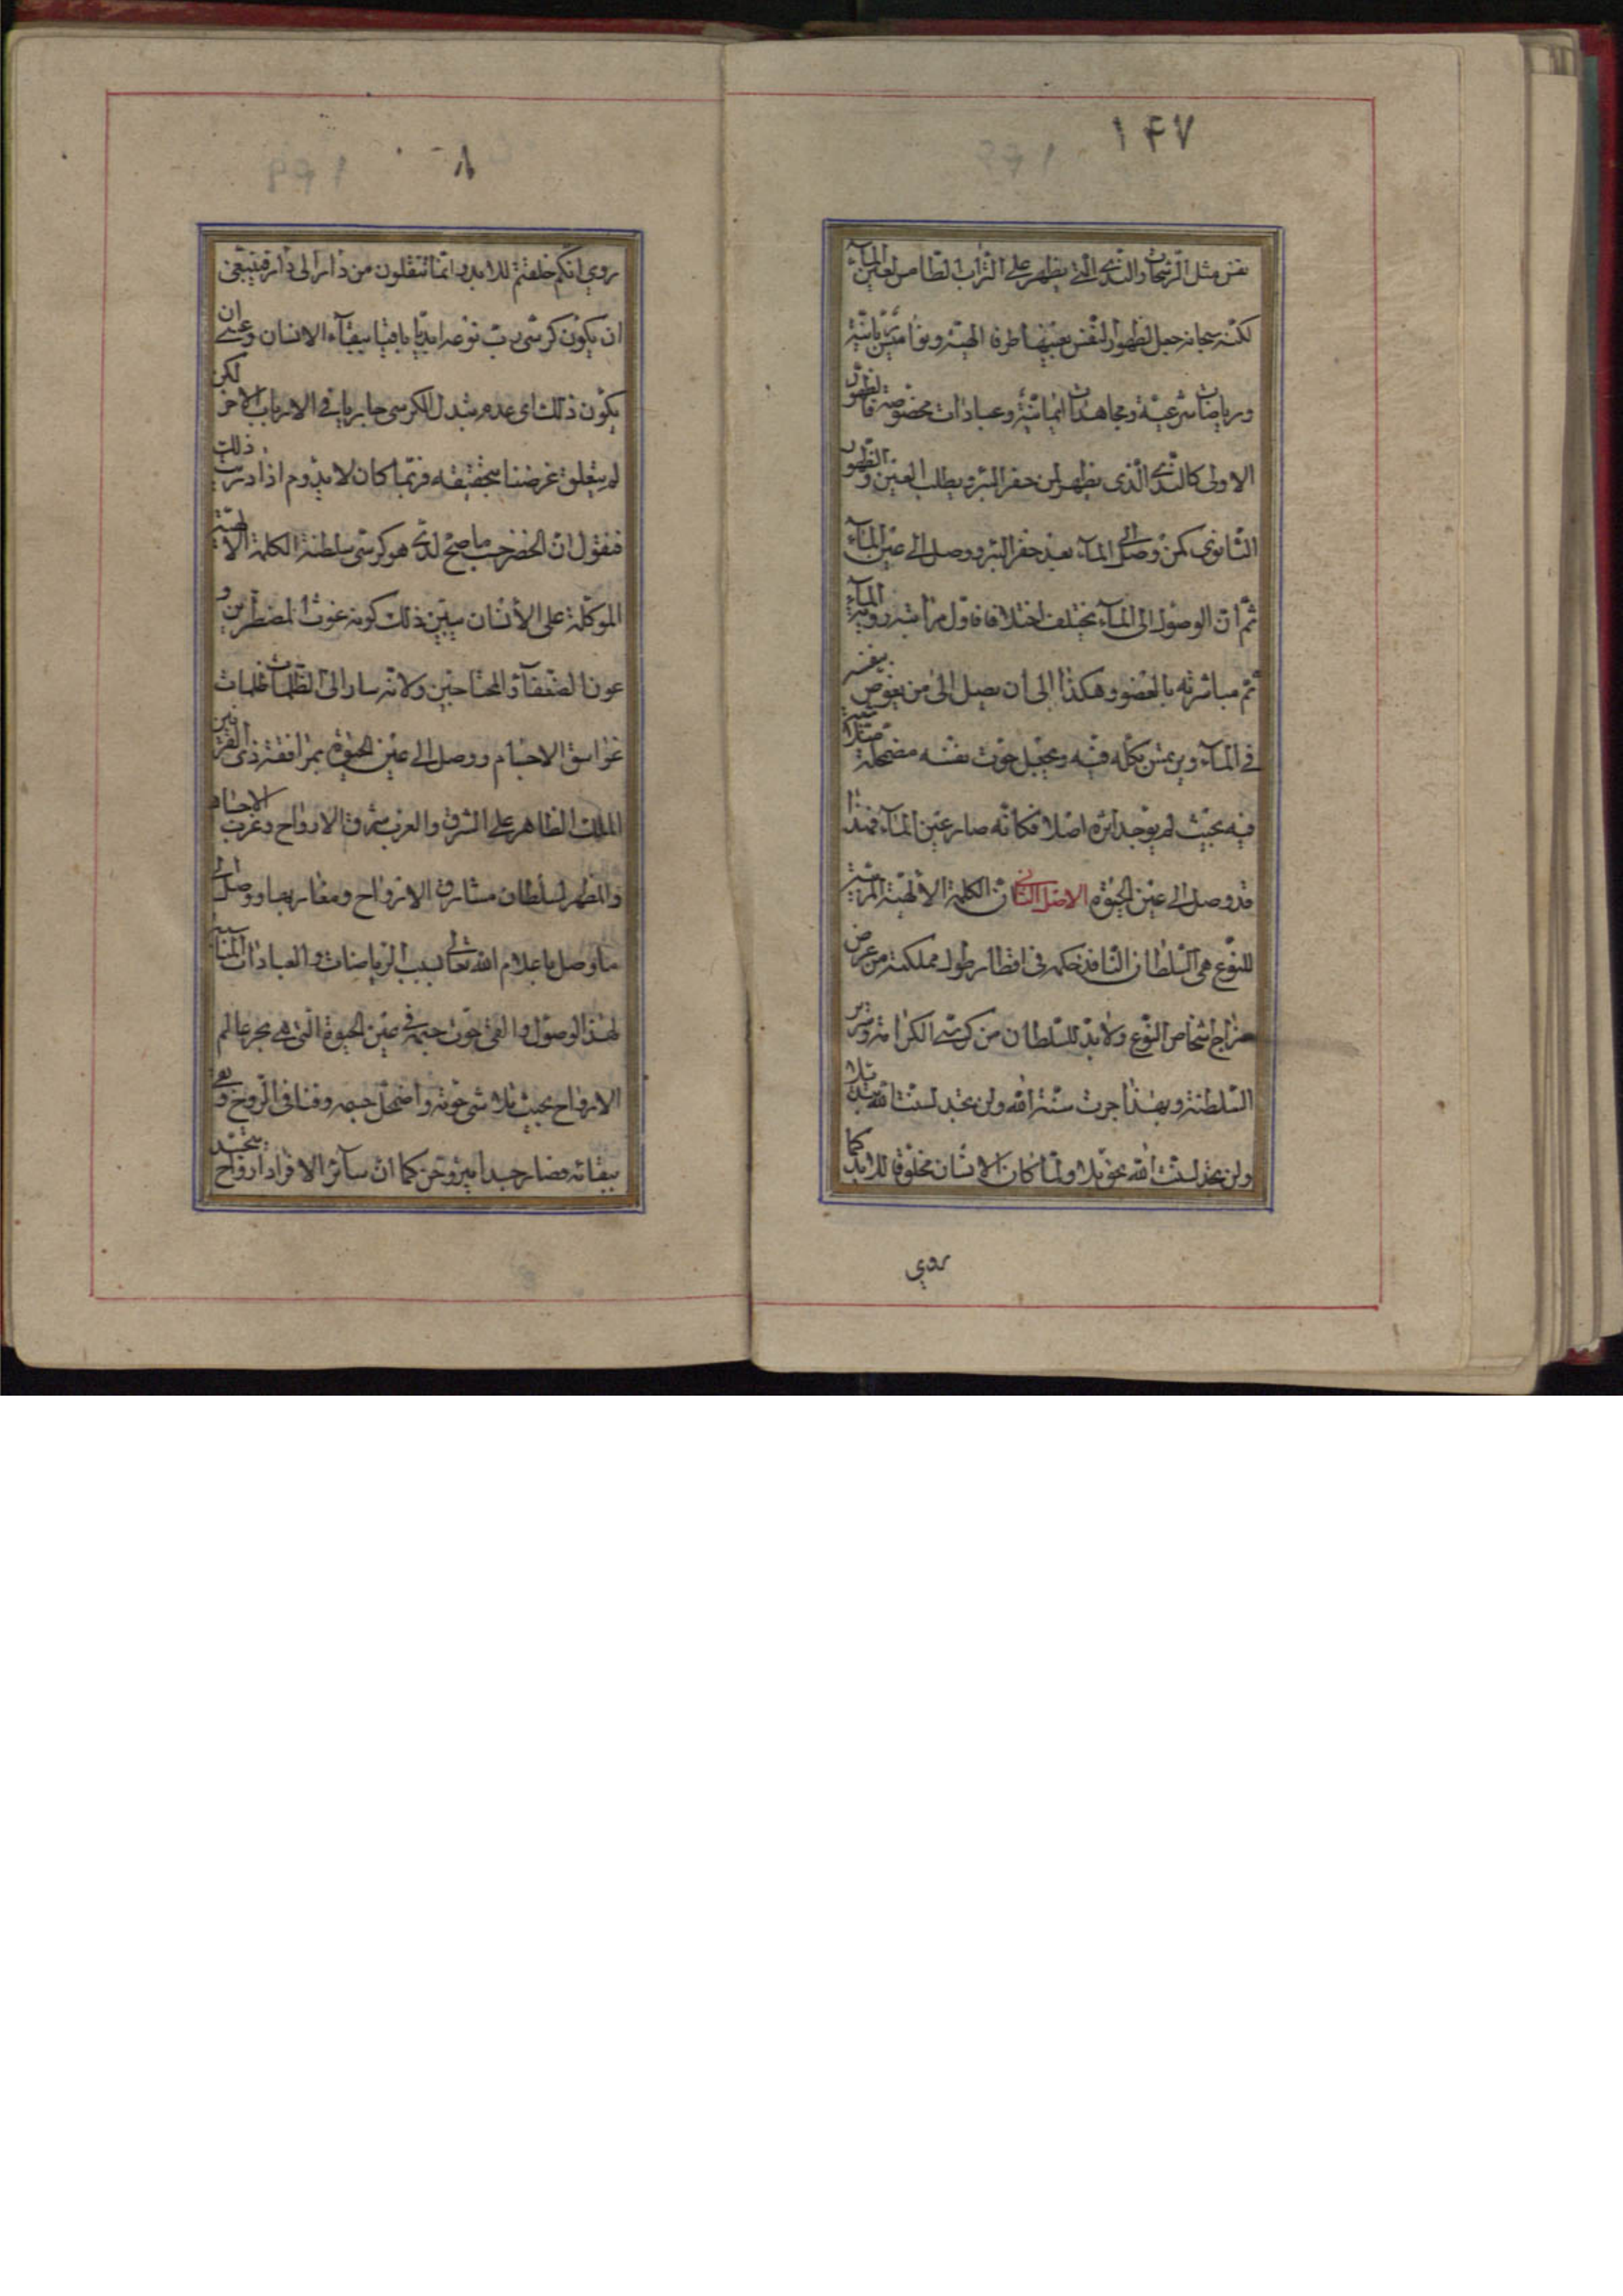 ۱۴۷
نفس مثل الرشحات والندى التى يظهر على التراب لطامس لعين المآء
لكنه سبحانه جعل لظهور النفس بعينها طرقا الهية ونواميس ربانية
ورياضات شرعية ومجاهدات ايمانية وعبادات مخصوصة فالظهور
الاولى كالندى الذى يظهر لمن حفر البئر ويطلب العين والظهور
الثانوى كمن وصل الى المآء بعد حفر البئر ووصل الى عين المآء
ثم ان الوصول الى المآء يختلف اختلافا فاول مراتبه روية المآء
ثم مباشرته بالعضو وهكذا الى ان يصل الى من يغوص بنفسه
فى المآء ويرتمس بكله فيه ويجعل حوت نفسه مضمحلة متلاشية
فيه بحيث لم يوجد اثره اصلا فكانه صار عين المآء فهذا
قد وصل الى عين الحيوة الاصل الثانى ان الكلمة الالهية المربية
للنوع هى السلطان النافذ حكمه فى اقطار طول مملكته من عرض
اشخاص النوع ولابد للسلطان من كرسى الكرامة وسرير
السلطنة وبهذا جرت سنة الله ولن تجد لسنت الله تبديلا
ولن تجد لسنت الله تحويلا ولما كان الانسان مخلوقا للابد كما
روي
۸
روي انكم خلقتم للابد وانما تنتقلون من دار الى دار فينبغى
ان يكون كرسى رب نوعه ابديا باقيا ببقآء الانسان وعسى ان
يكون ذلك اى عدم تبدل الكرسى جاريا فى الارباب الاخر لكن
لم يتعلق غرضنا بتحقيقه وربما كان لابد وم اذا دريت ذلك
فنقول ان الخضر حسب ما صح لدى هو كرسى سلطنة الكلمة الالهية
الموكلة على الانسان يبين ذلك كونه غوث المضطرين و
عون الضعفآء والمحتاجين ولانه سار الى الظلمات ظلمات
غواسق الاجسام ووصل الى عين الحيوة بمرافقة ذى القرنين
الملك الظاهر على الشرق والغرب شرق الارواح وغرب الاجسام
والمظهر لسلطان مشارق الارواح ومغاربها ووصل الى
ما وصل باعلام الله تعالى بسبب الرياضات والعبادات المناسبة
لهذا الوصول والقى حوت جسمه فى عين الحيوة التى هى بحر عالم
الارواح بحيث تلاشى حوته واضمحل جسمه وفنا فى الروح وبقى
ببقائه فصار جسدا متروحن كما ان سآئر الافراد ارواح متجسد